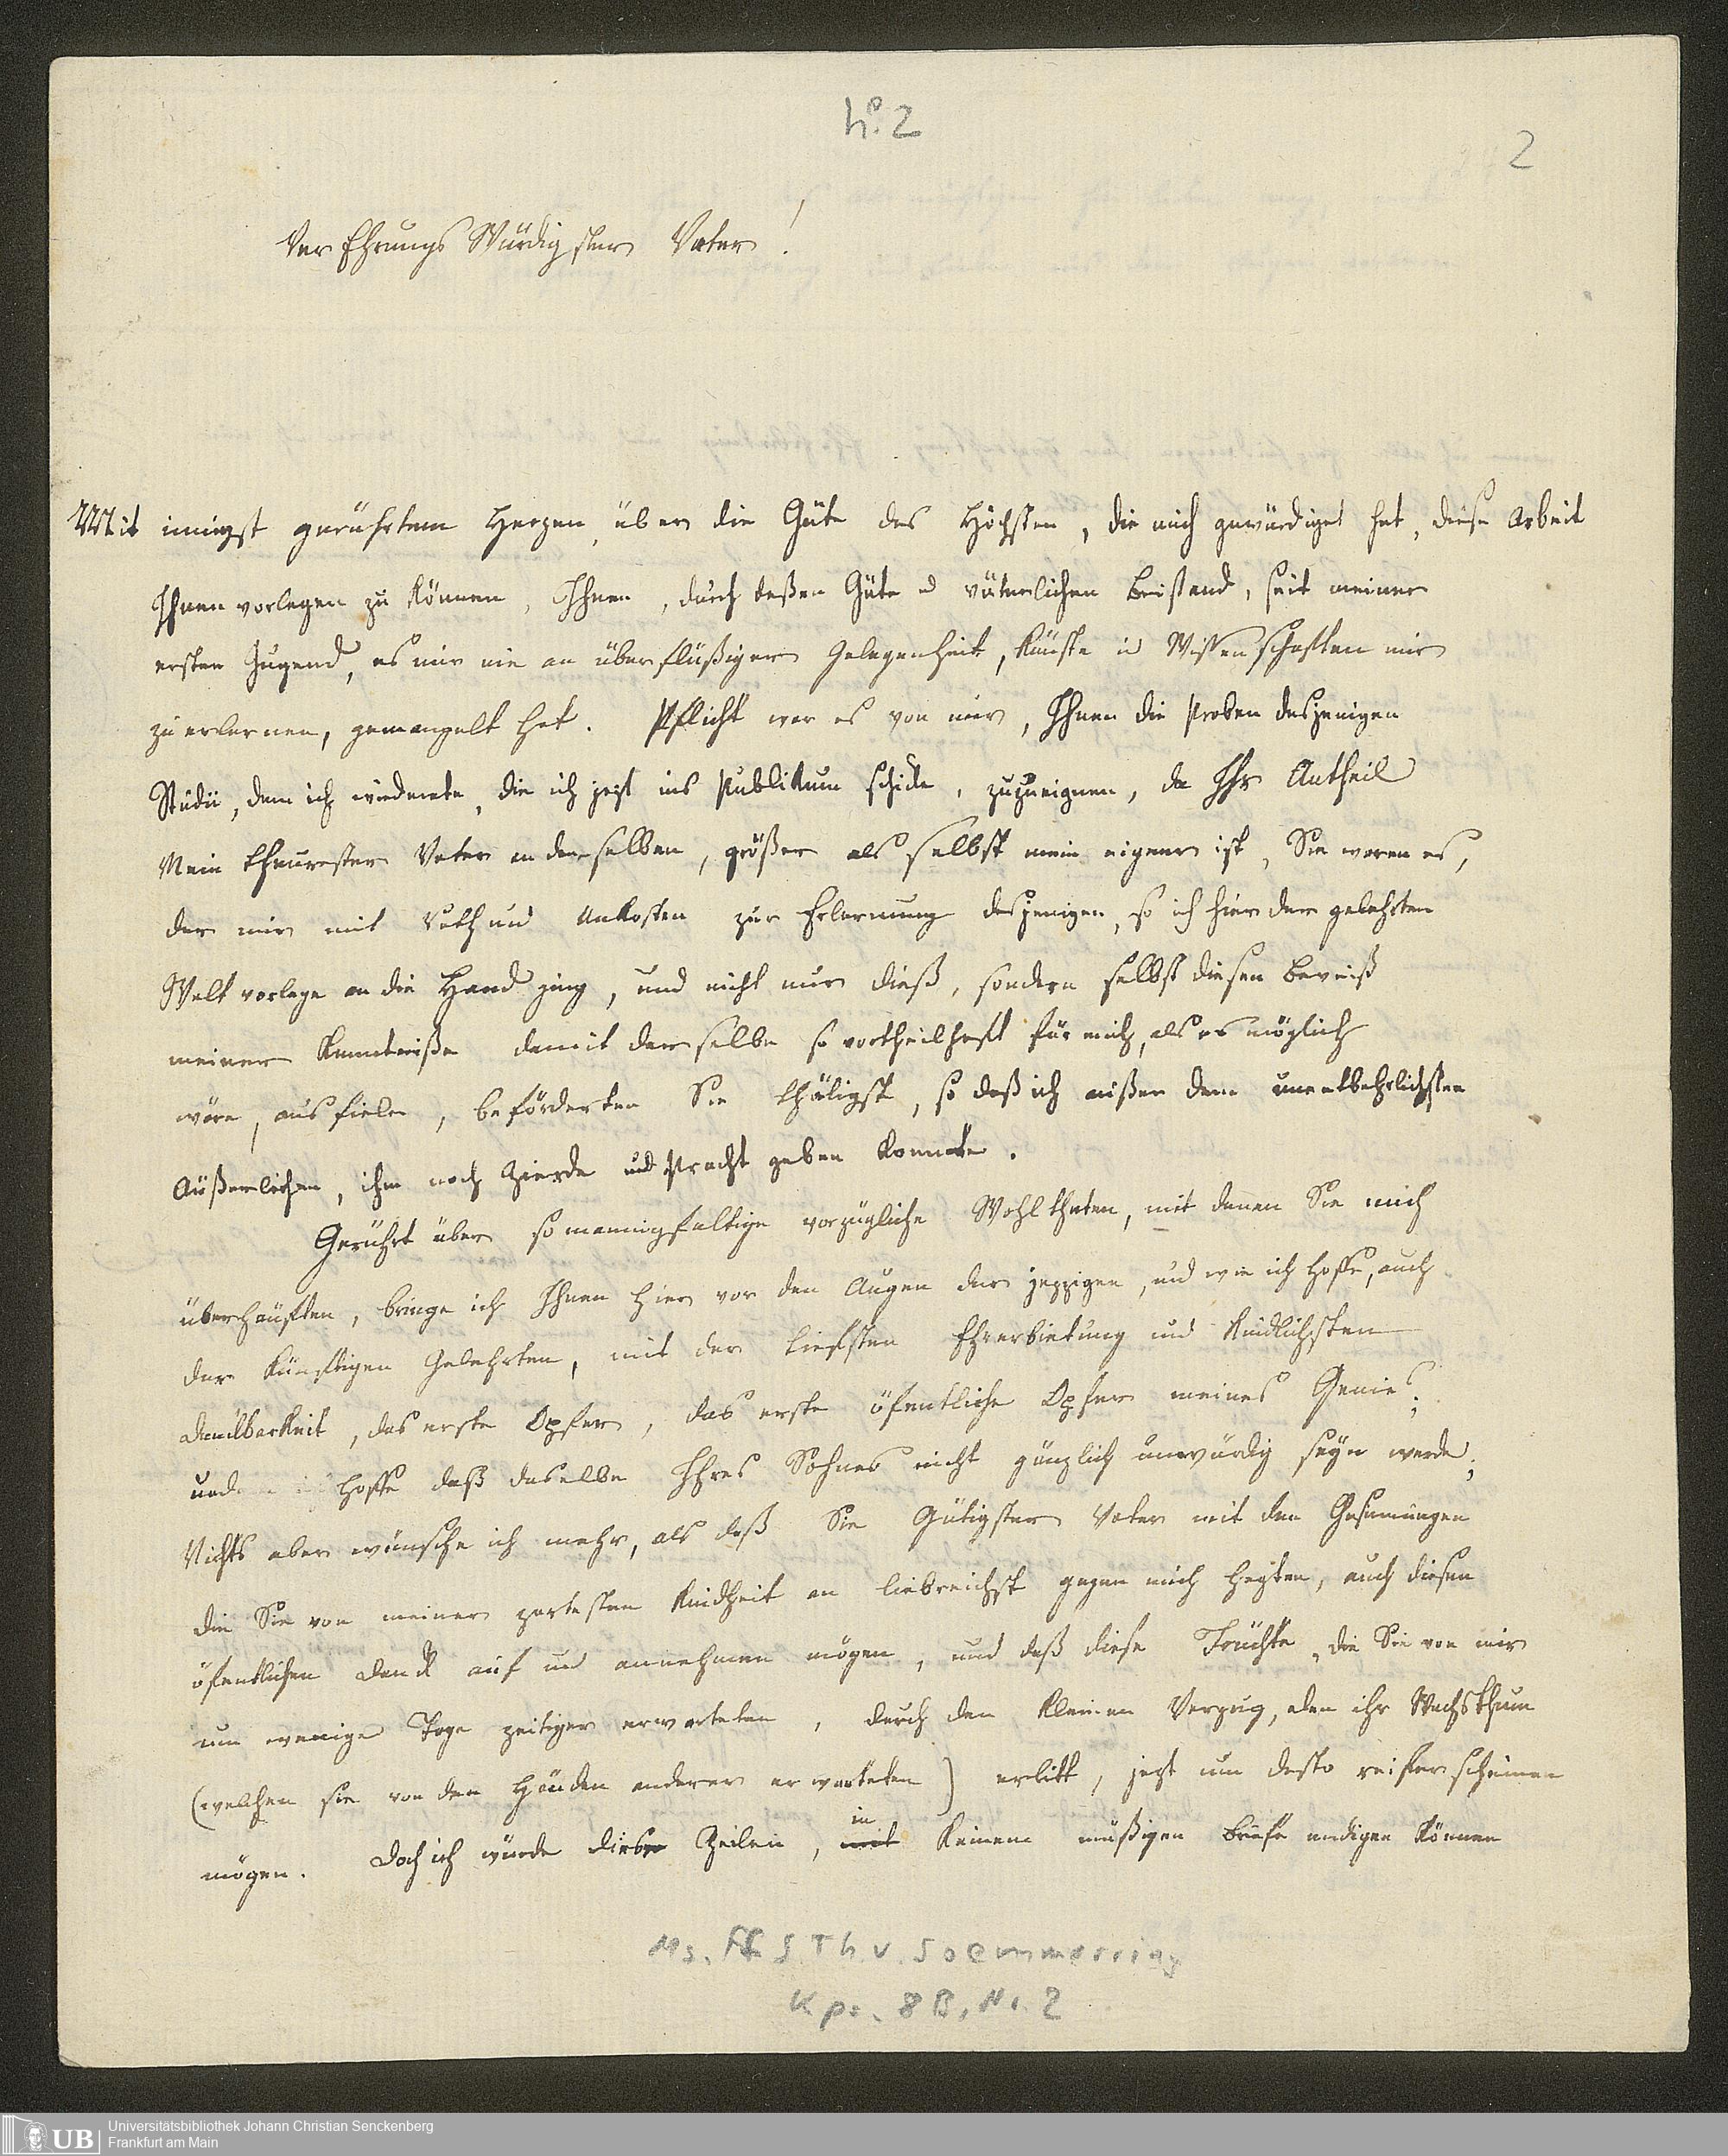 No. 2
2
VerEhrungsWürdigster Vater!
Mit innigst gerührtem Herzen, über die Güte des Höchsten, die mich gewürdiget hat, diese Arbeit
Ihnen vorlegen zu können, Ihnen, durch deßen Güte u väterlichen Beistand, seit meiner
ersten Jugend, es mir nie an überflüßiger Gelegenheit, Künste u Wissenschaften mir
zu erlernen, gemangelt hat. Pflicht war es von mir, Ihnen die Proben desjenigen
Studii, dem ich wiedmete, die ich jezt ins Publikum schicke, zuzueignen, da Ihr Antheil
Mein theurester Vater an denselben, größer als selbst mein eigner ist, Sie waren es,
der mir mit Rath und Unkosten zur Erlernung desjenigen, so ich hier der gelehrten
Welt vorlege an die Hand ging, und nicht nur dieß, sondern selbst diesen Beweiß
meiner Kenntniße damit derselbe so vortheilhaft für mich, als es möglich
wäre, ausfiele, beförderten Sie thätigst, so daß ich außer dem unentbehrlichsten
Äußerlichen, ihm noch Zierde und Pracht geben konnte.
Gerührt über so mannigfaltige vorzügliche Wohlthaten, mit denen Sie mich
überhäuften, bringe ich Ihnen hier vor den Augen der jezzigen, und wie ich hoffe, auch
der künftigen Gelehrten, mit der tiefsten Ehrerbietung und kindlichsten
Danckbarkeit, das erste Opfer, das erste öfentliche Opfer meines Genies;
und hoffe daß daselbe Ihres Sohnes nicht gänzlich unwürdig seyn werde;
Nichts aber wünsche ich mehr, als daß Sie Gütigster Vater mit den Gesinnungen
die Sie von meiner zartesten Kindheit an liebreichst gegen mich hegten, auch diesen
öfentlichen Danck auf und annehmen mögen, und daß diese Früchte, die Sie von mir
um wenige Tage zeitiger erwarteten, durch den kleinen Verzug, den ihr Wachsthum
(welchen sie von den Händen anderer erwarteten) erlitt, jezt um desto reifer scheinen
in
mögen. Doch ich würde diese Zeilen, mit keinem müßigen Briefe endigen können
Ms. Ff. S. Th. v. Soemmerring
Kps. 8 B, Nr. 2
UB
Universitätsbibliothek Johann Christian Senckenberg
Frankfurt am Main